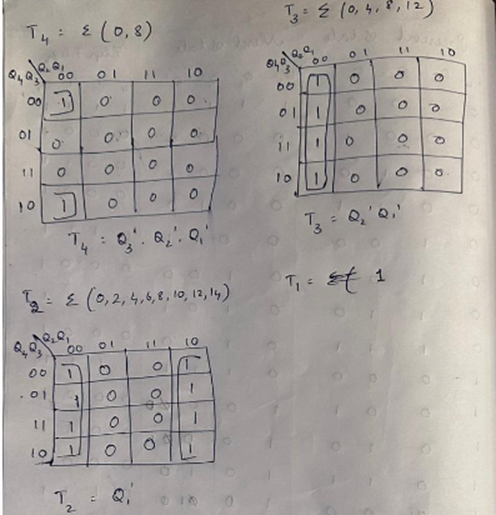 T₄ = Σ (0,8)
Q₄Q₃ Q₂Q₁ 00 01 11 10
00 1 0 0 0
01 0 0 0 0
11 0 0 0 0
10 1 0 0 0
T₄ = Q₃' . Q₂' . Q₁'
T₃ = Σ (0, 4, 8, 12)
Q₄Q₃ Q₂Q₁ 00 01 11 10
00 1 0 0 0
01 1 0 0 0
11 1 0 0 0
10 1 0 0 0
T₃ = Q₂' Q₁'
T₁ = 1
T₂ = Σ (0,2,4,6,8,10,12,14)
Q₄Q₃ Q₂Q₁ 00 01 11 10
00 1 0 0 1
01 1 0 0 1
11 1 0 0 1
10 1 0 0 1
T₂ = Q₁'